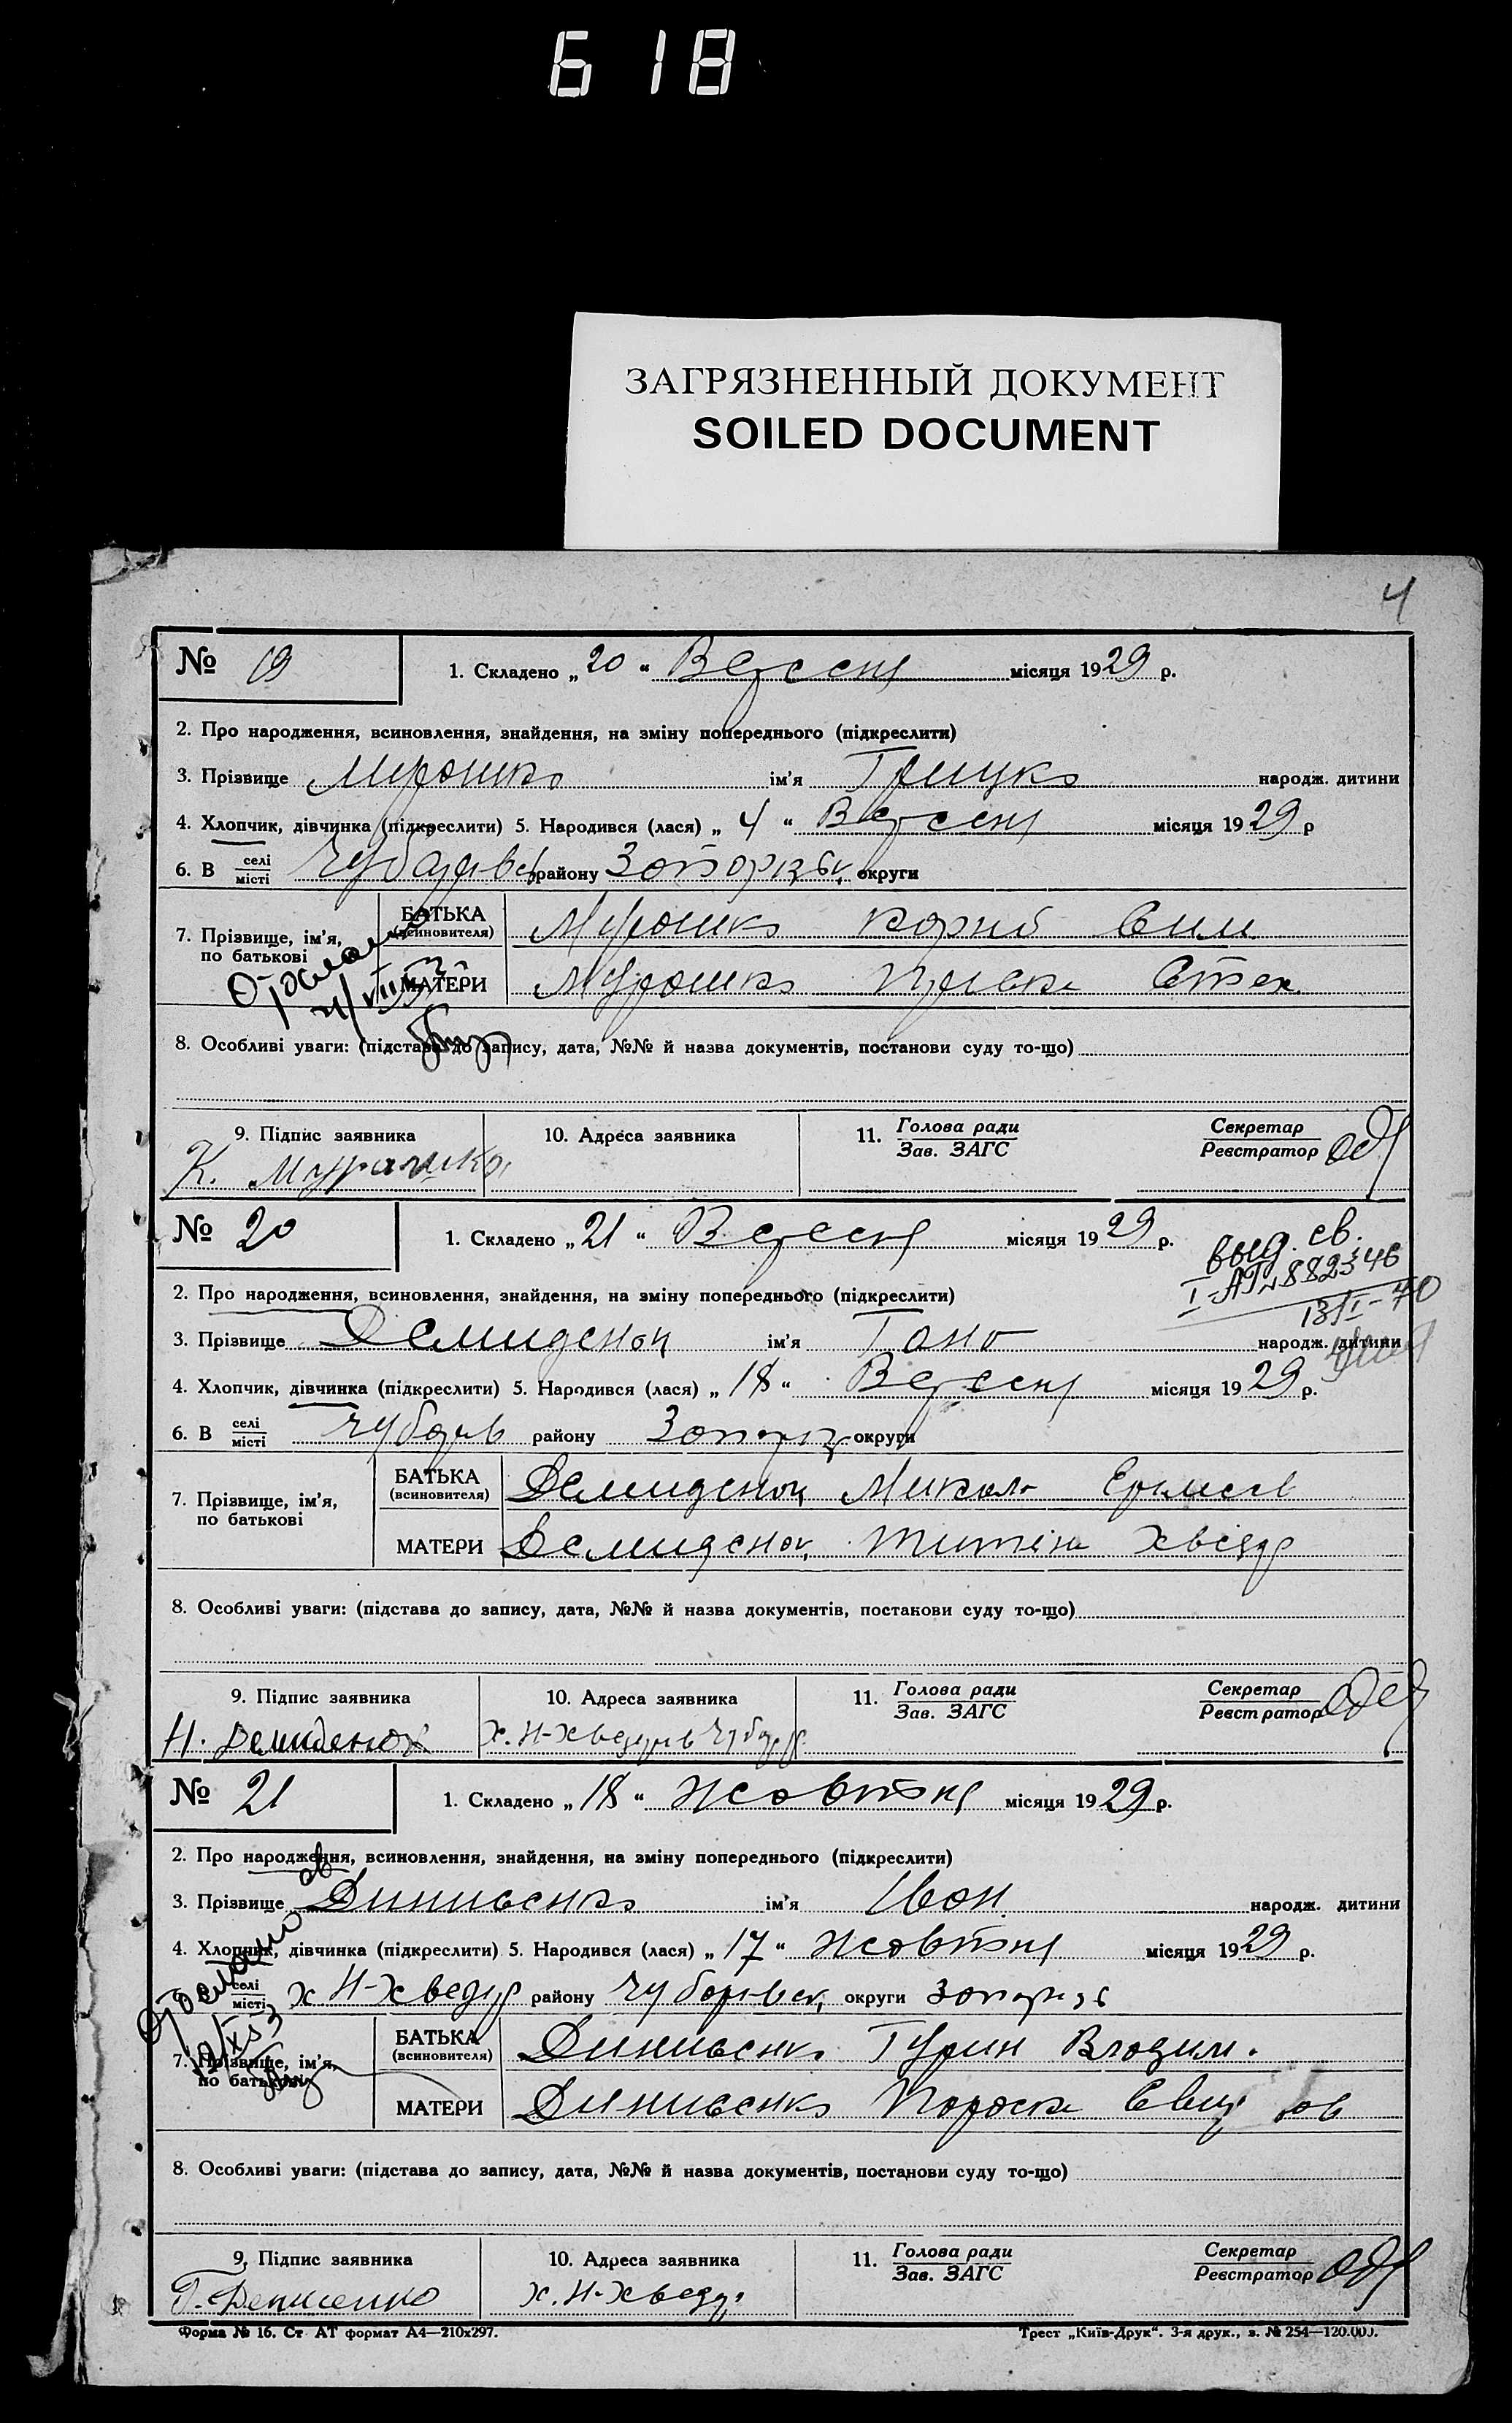 618
ЗАГРЯЗНЕННЫЙ ДОКУМЕНТ
SOILED DOCUMENT
4
№ 19 1. Складено „20“ Вересня місяця 1929 р.
2. Про народження, всиновлення, знайдення, на зміну попереднього (підкреслити)
3. Прізвище Мурошко ім'я Грицко народж. дитини
4. Хлопчик, дівчинка (підкреслити) 5. Народився (лася) „4“ Вересня місяця 1929 р
6. В селі місті району округи
7. Прізвище, ім'я, по батькові
БАТЬКА (всиновителя) Мурошко Корній
МАТЕРИ Мурошко
8. Особливі уваги: (підстава до запису, дата, №№ й назва документів, постанови суду то-що)
9. Підпис заявника 10. Адреса заявника 11. Голова ради Зав. ЗАГС Секретар Реєстратор
К. Мурашко
№ 20 1. Складено „21“ Вересня місяця 1929 р.
выд. св.
I-АП № 882346
13/I-70
2. Про народження, всиновлення, знайдення, на зміну попереднього (підкреслити)
3. Прізвище Демиденок ім'я народж. дитини
4. Хлопчик, дівчинка (підкреслити) 5. Народився (лася) „18“ Вересня місяця 1929 р.
6. В селі місті Чубарів району Запоріз округи
7. Прізвище, ім'я, по батькові
БАТЬКА (всиновителя) Демиденок Микола
МАТЕРИ Демиденок
8. Особливі уваги: (підстава до запису, дата, №№ й назва документів, постанови суду то-що)
9. Підпис заявника 10. Адреса заявника 11. Голова ради Зав. ЗАГС Секретар Реєстратор
Н. Демиденок х. Н-Хведор
№ 21 1. Складено „18“ Жовтня місяця 1929 р.
2. Про народження, всиновлення, знайдення, на зміну попереднього (підкреслити)
3. Прізвище Динисенко ім'я Іван народж. дитини
4. Хлопчик, дівчинка (підкреслити) 5. Народився (лася) „17“ Жовтня місяця 1929 р.
селі місті х Н-Хведор району Чубарівск округи Запоріз
7. Прізвище, ім'я, по батькові
БАТЬКА (всиновителя) Динисенко Гурин Владим.
МАТЕРИ Динисенко Пороска
8. Особливі уваги: (підстава до запису, дата, №№ й назва документів, постанови суду то-що)
9. Підпис заявника 10. Адреса заявника 11. Голова ради Зав. ЗАГС Секретар Реєстратор
Г. Денисенко х. Н-Хведор
Форма № 16. Ст АТ формат А4—210х297. Трест „Київ-Друк“. 3-я друк., з. № 254—120.000.